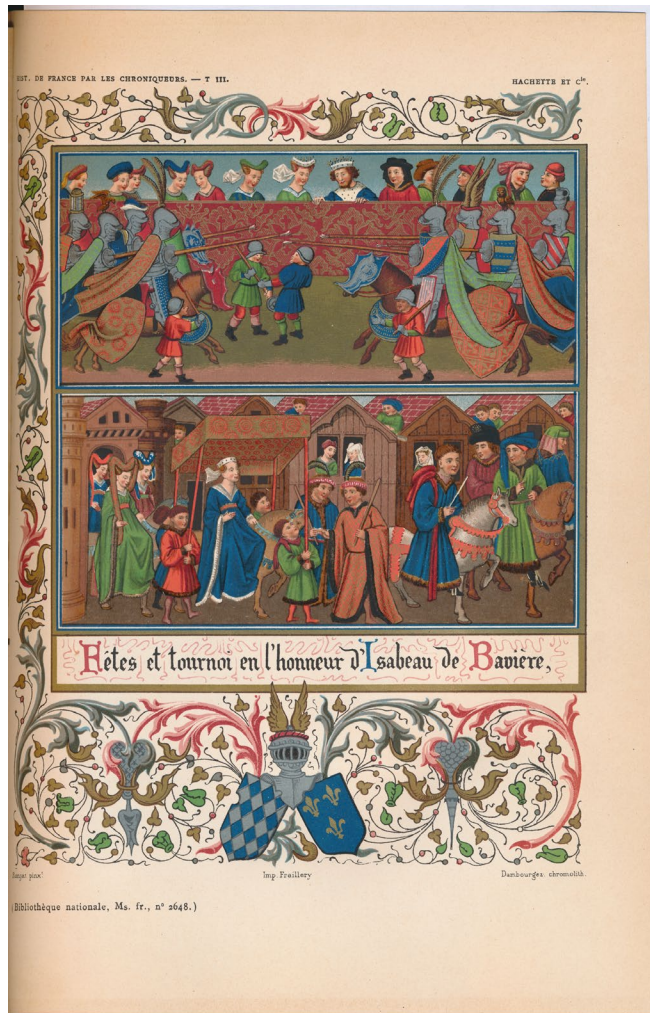 IST. DE FRANCE PAR LES CHRONIQUEURS. — T III.
HACHETTE ET Cie.
Fêtes et tournoi en l'honneur d'Isabeau de Bavière,
pinxt
Imp. Fraillery
Dambourgez. chromolith.
(Bibliothèque nationale, Ms. fr., nº 2648.)